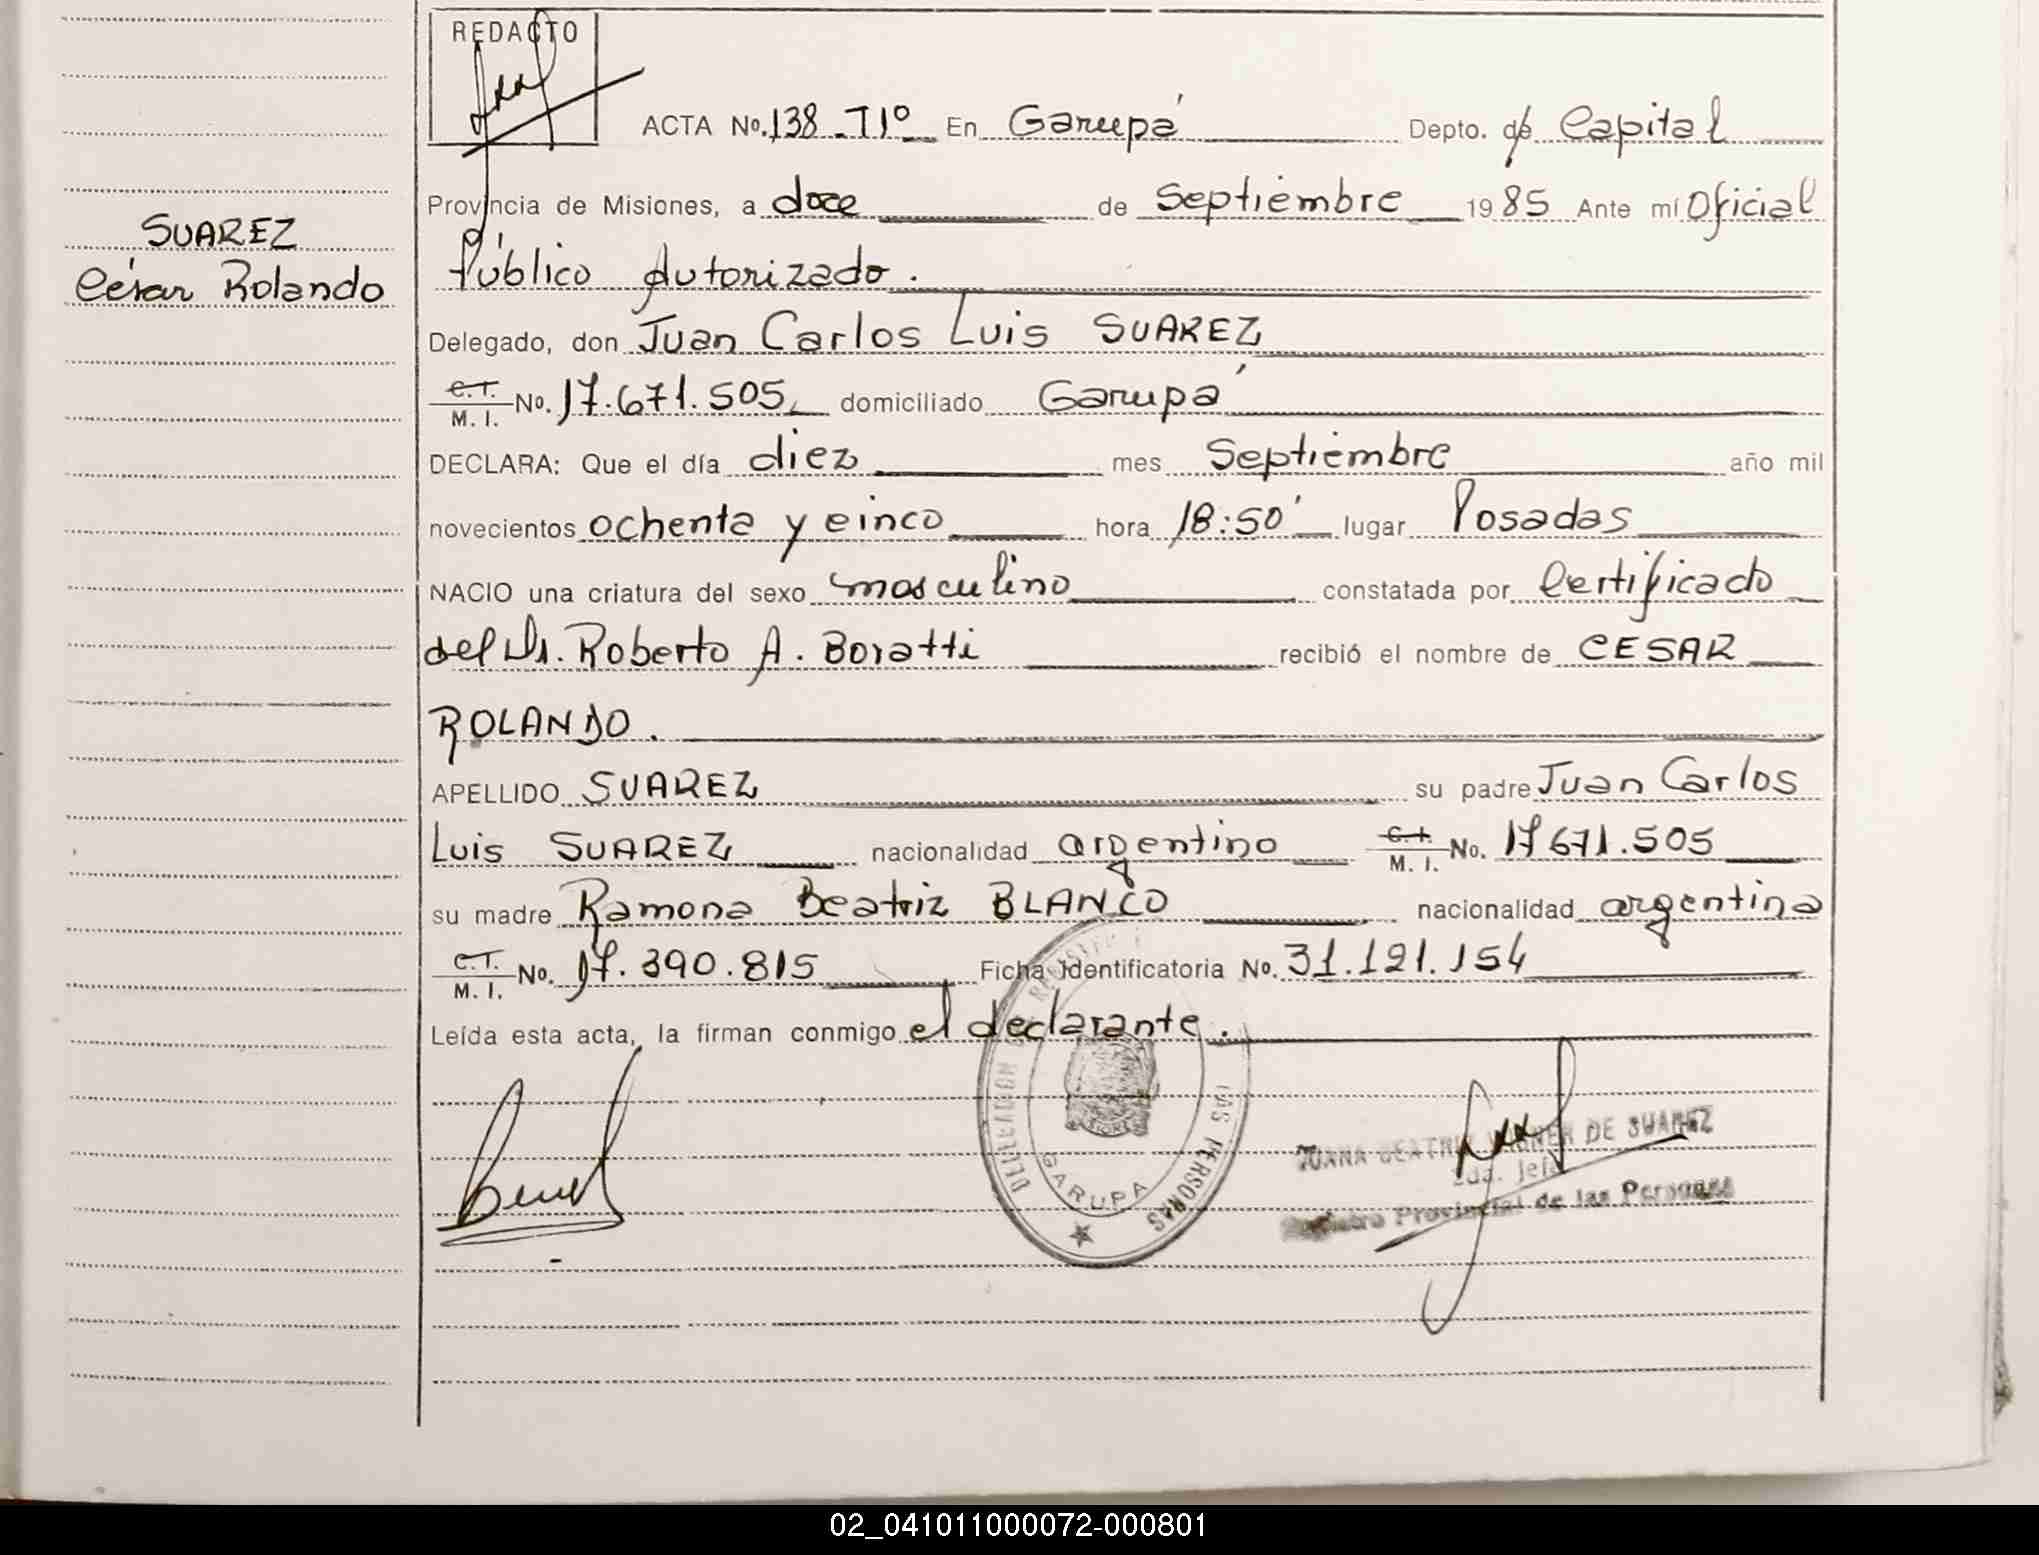 REDACTO
ACTA No. 138 - T1º En Garupá Depto. de Capital
Provincia de Misiones, a doce de Septiembre 1985 Ante mí Oficial
Público Autorizado.
SUAREZ
César Rolando
Delegado, don Juan Carlos Luis SUAREZ
C.I. M. I. No. 17.671.505 domiciliado Garupá
DECLARA: Que el día diez mes Septiembre año mil
novecientos ochenta y cinco hora 18:50' lugar Posadas
NACIO una criatura del sexo masculino constatada por Certificado
del Dr. Roberto A. Boratti recibió el nombre de CESAR
ROLANDO.
APELLIDO SUAREZ su padre Juan Carlos
Luis SUAREZ nacionalidad argentino C.I. M. I. No. 17671.505
su madre Ramona Beatriz BLANCO nacionalidad argentina
C.I. M. I. No. 17.390.815 Ficha Identificatoria No. 31.121.154
Leída esta acta, la firman conmigo el declarante.
DELEGACION REGISTRO LAS PERSONAS
GARUPA
JUANA BEATRIZ DE SUAREZ
2da. Jefe
Registro Provincial de las Personas
02_041011000072-000801